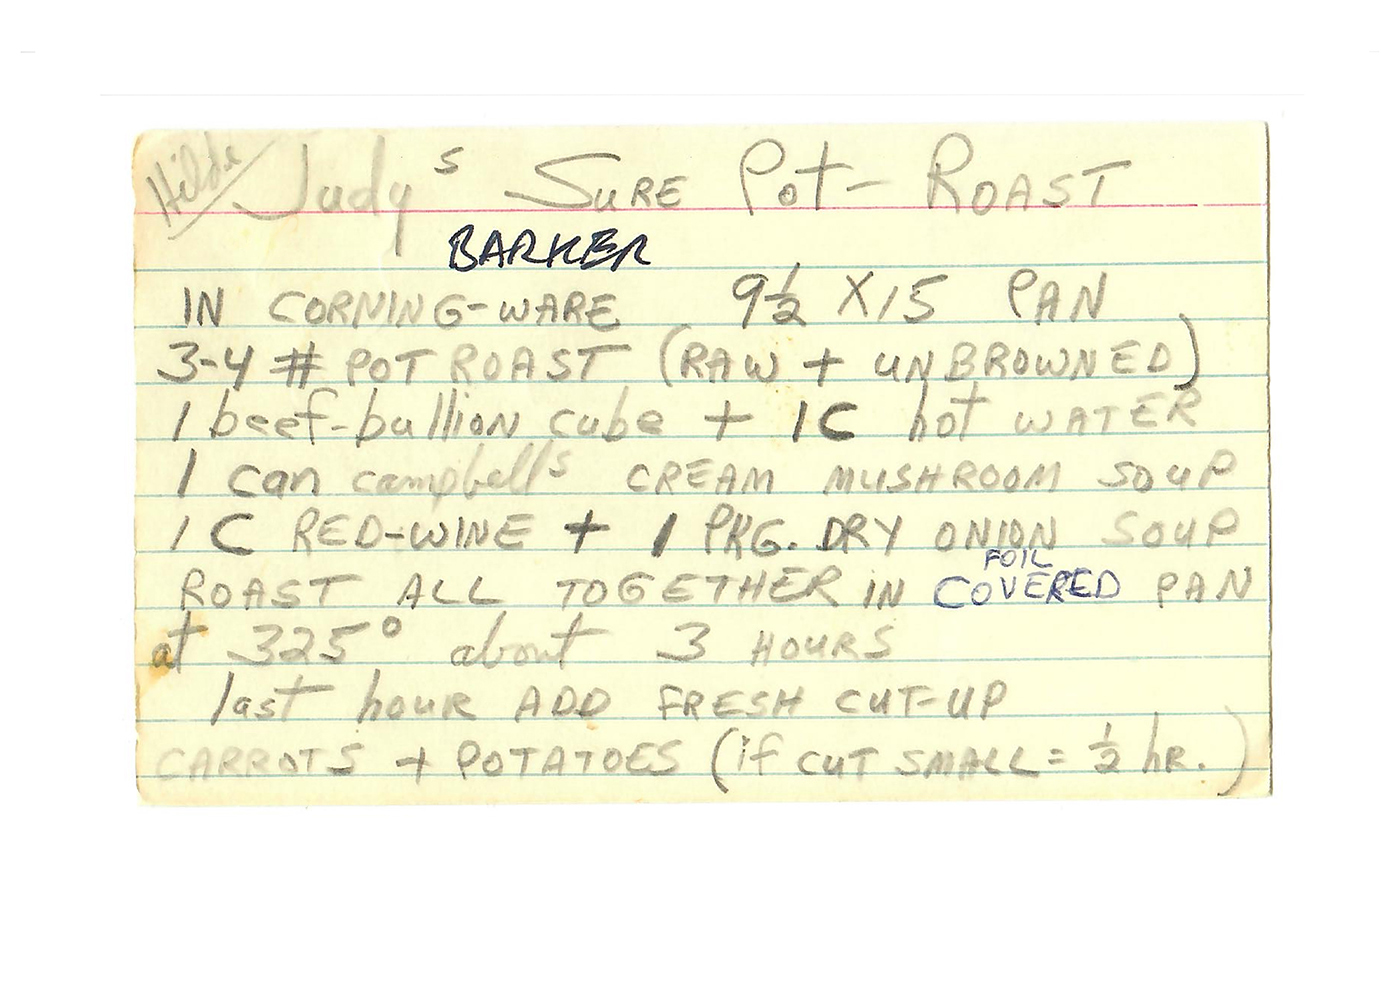 Hilde
Judy's SURE Pot-ROAST
BARKER
IN CORNING-WARE 9½ X15 PAN
3-4 # POT ROAST (RAW + UNBROWNED)
1 beef-bullion cube + 1C hot WATER
1 can campbell's CREAM MUSHROOM SOUP
1 C RED-WINE + 1 PKG. DRY ONION SOUP
FOIL
ROAST ALL TOGETHER IN COVERED PAN
at 325° about 3 HOURS
last hour ADD FRESH CUT-UP
CARROTS + POTATOES (if CUT SMALL = ½ hr.)